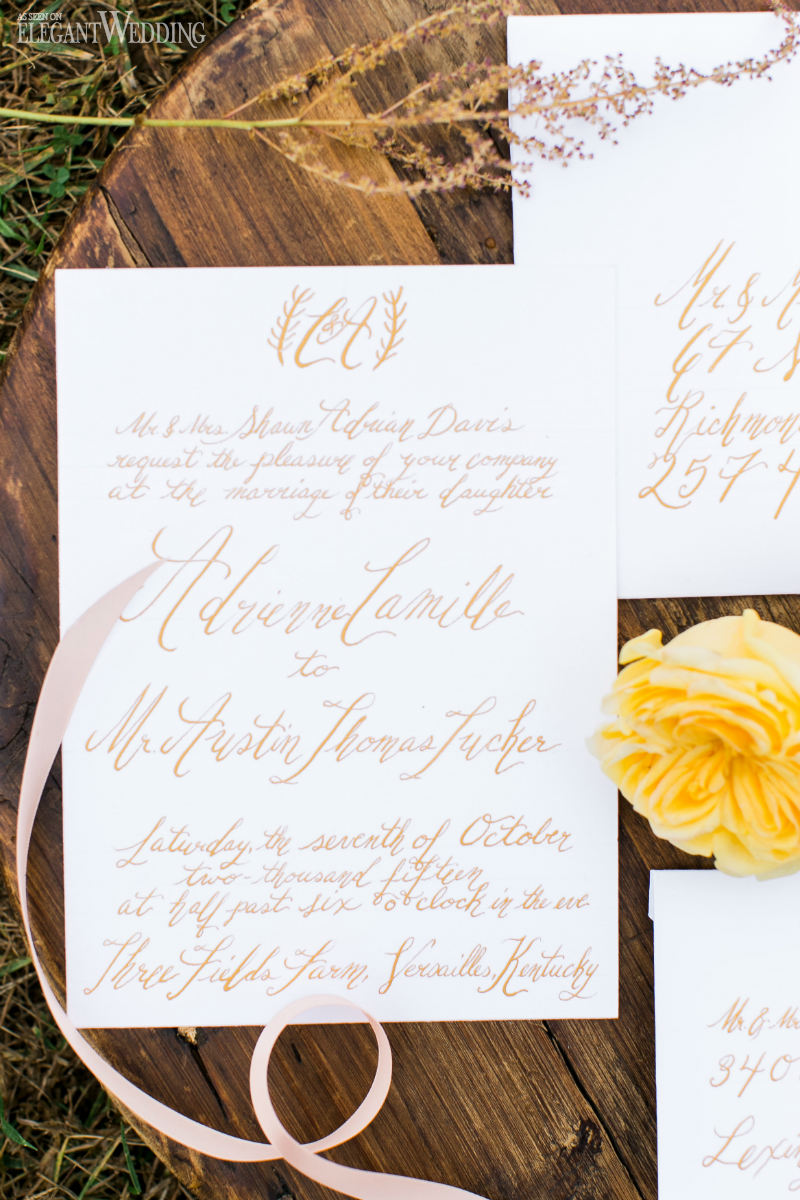 AS SEEN ON
ELEGANTWEDDING
&A
Mr. & Mrs. Shawn Adrian Davis
request the pleasure of your company
at the marriage of their daughter
Adrienne Camille
to
Mr. Austin Thomas Tucker
Saturday, the seventh of October
two-thousand fifteen
at half past six o'clock in the eve
Three Fields Farm, Versailles, Kentucky
Mr. &
67
Richmon
257
Mr. &
340
Lexin